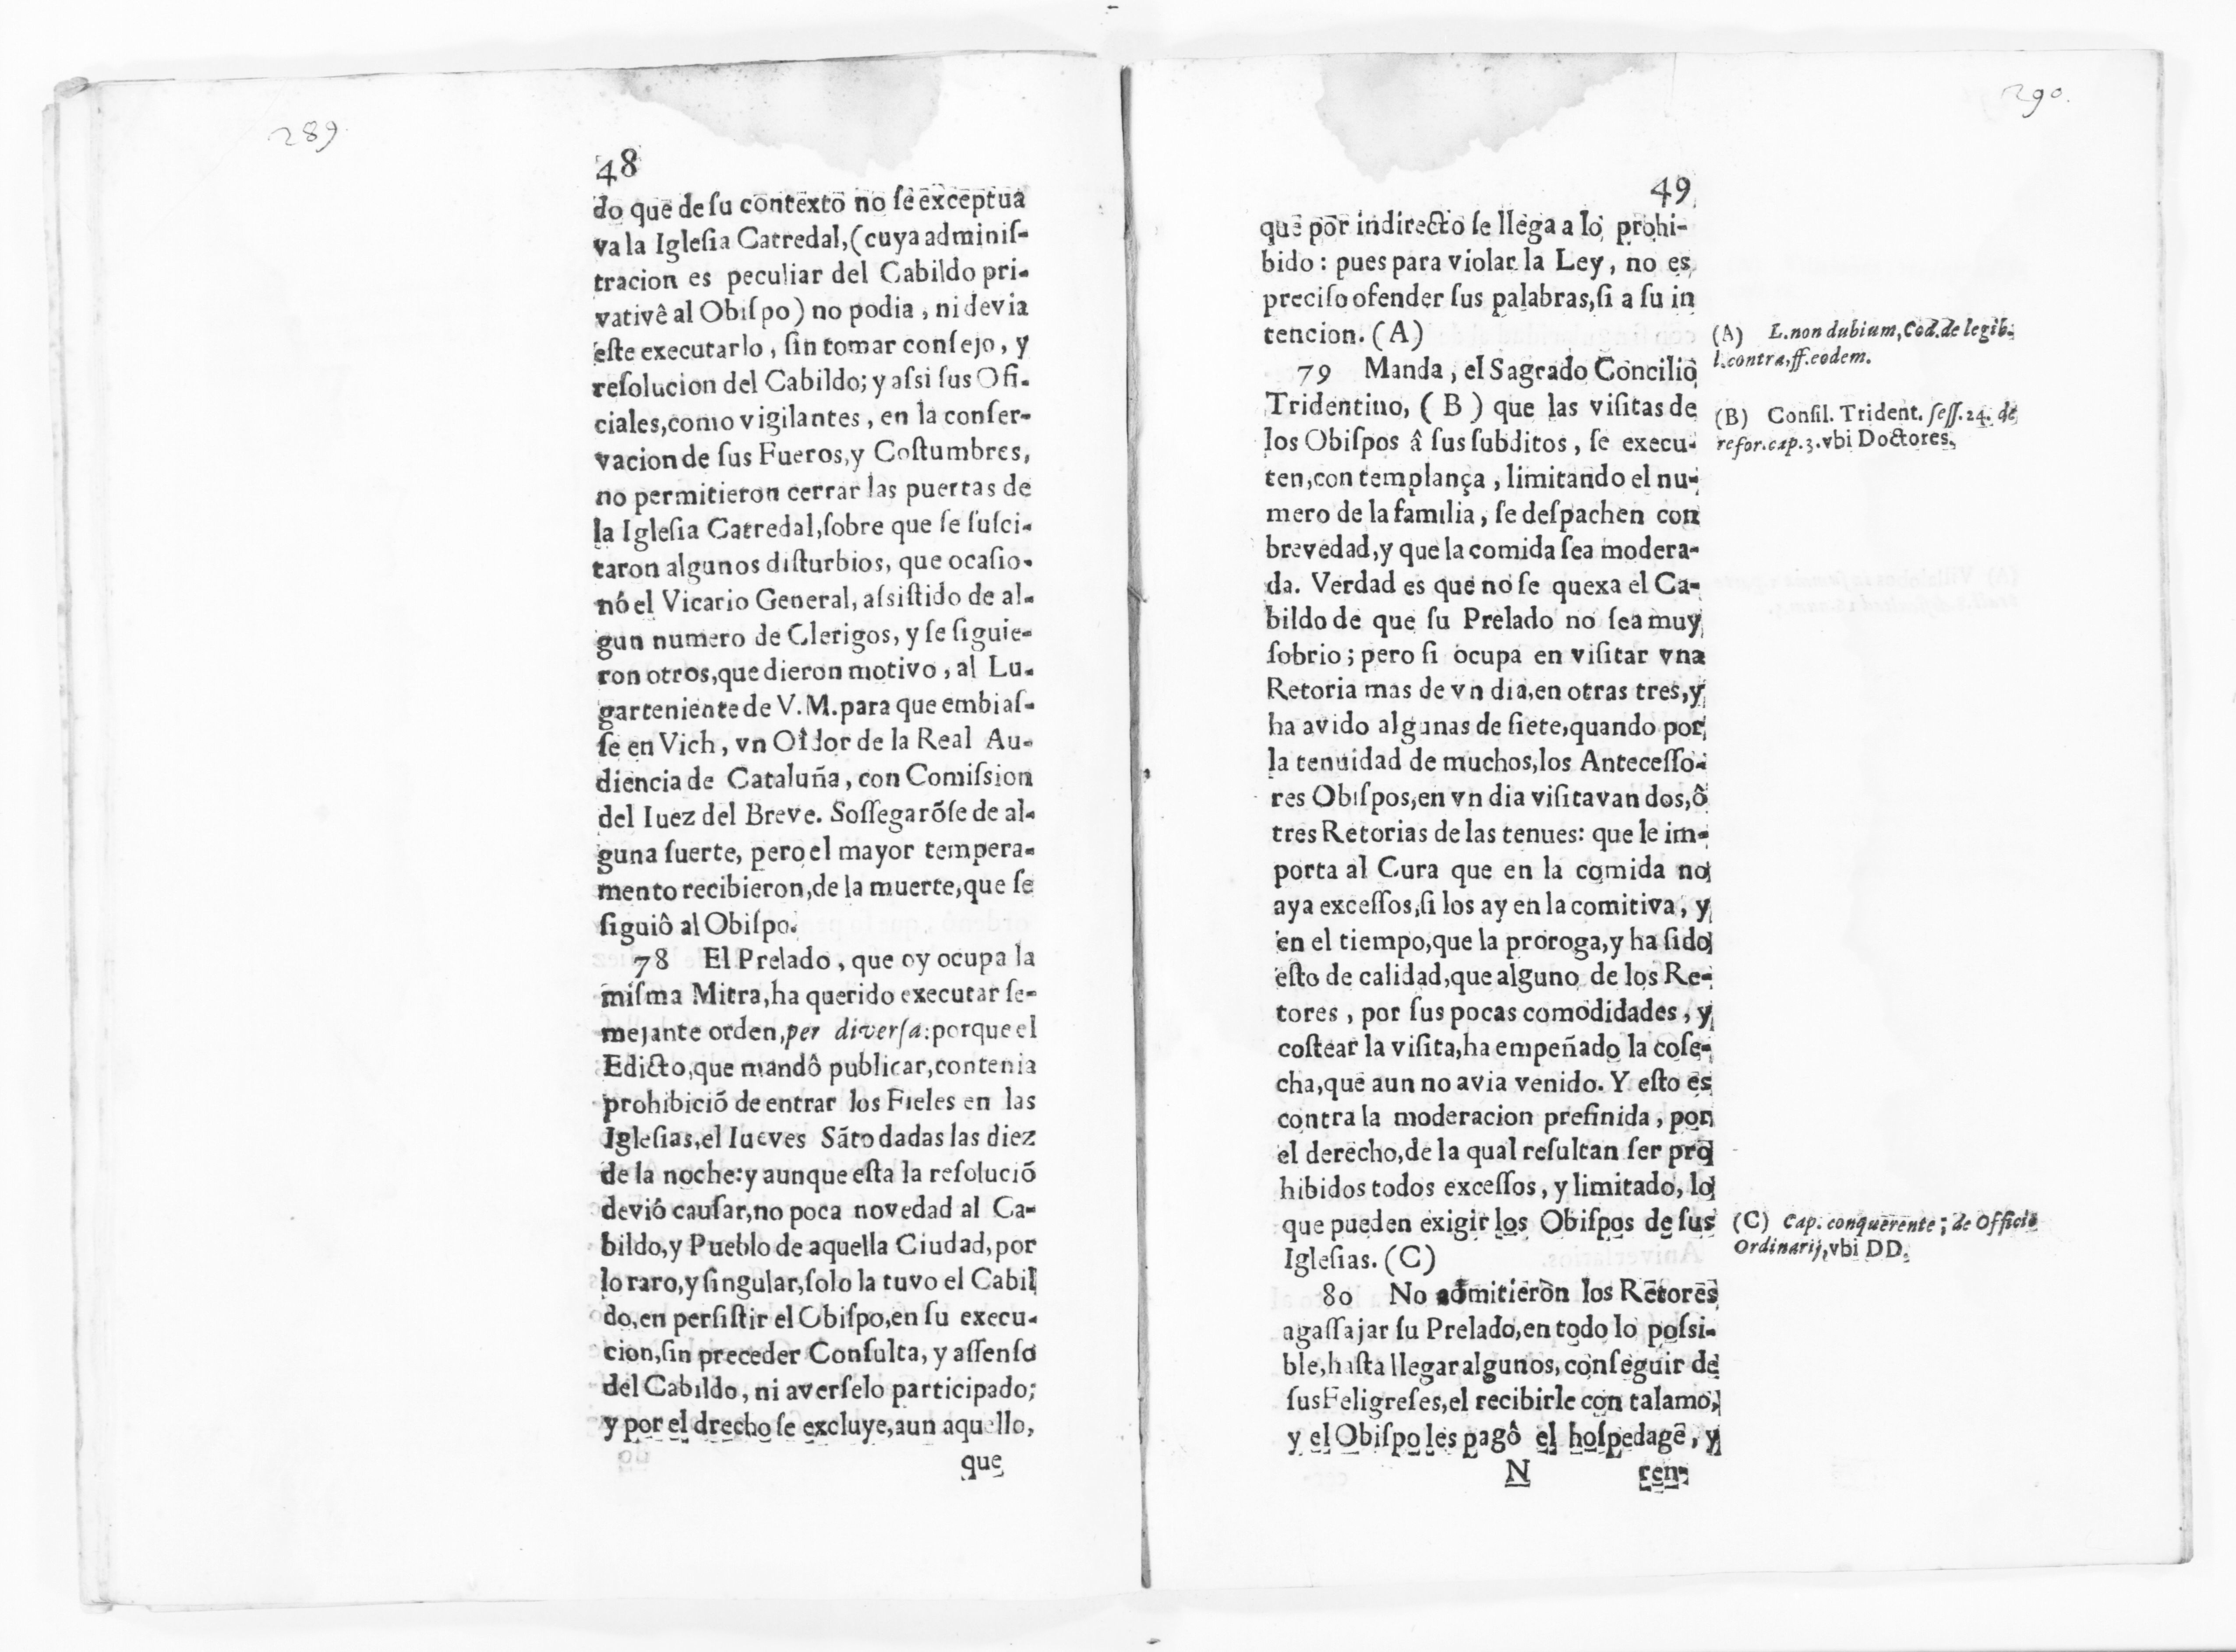 289
48
do que de ſu contexto no ſe exceptua
va la Igleſia Catredal,(cuya adminiſ-
tracion es peculiar del Cabildo pri-
vativê al Obiſpo) no podia, ni devia
eſte executarlo, ſin tomar conſejo, y
reſolucion del Cabildo; y aſsi ſus Ofi-
ciales,como vigilantes, en la conſer-
vacion de ſus Fueros,y Coſtumbres,
no permitieron cerrar las puertas de
la Igleſia Catredal,ſobre que ſe ſuſci-
taron algunos diſturbios, que ocaſio-
nó el Vicario General, aſsiſtido de al-
gun numero de Clerigos, y ſe ſiguie-
ron otros,que dieron motivo, al Lu-
garteniente de V.M.para que embiaſ-
ſe en Vich, vn Oîdor de la Real Au-
diencia de Cataluña, con Comiſsion
del Iuez del Breve. Soſſegarõſe de al-
guna ſuerte, pero el mayor tempera-
mento recibieron,de la muerte,que ſe
ſiguiô al Obiſpo.
78 El Prelado, que oy ocupa la
miſma Mitra,ha querido executar ſe-
mejante orden,per diverſa: porque el
Edicto,que mandô publicar,contenia
prohibiciõ de entrar los Fieles en las
Igleſias,el Iueves Sãto dadas las diez
de la noche: y aunque eſta la reſoluciõ
devió cauſar,no poca novedad al Ca-
bildo,y Pueblo de aquella Ciudad, por
lo raro,y ſingular,ſolo la tuvo el Cabil
do,en perſiſtir el Obiſpo,en ſu execu-
cion,ſin preceder Conſulta, y aſſenſo
del Cabildo, ni averſelo participado;
y por el drecho ſe excluye,aun aquello,
que
290.
49
que por indirecto ſe llega a lo prohi-
bido: pues para violar la Ley, no es
preciſo ofender ſus palabras,ſi a ſu in
tencion. (A)
(A) L.non dubium, Cod.de legib.
l.contra,ff.eodem.
79 Manda, el Sagrado Concilio
Tridentino, (B) que las viſitas de
los Obiſpos â ſus ſubditos, ſe execu-
ten,con templança, limitando el nu-
mero de la familia, ſe deſpachen con
brevedad,y que la comida ſea modera-
da. Verdad es que no ſe quexa el Ca-
bildo de que ſu Prelado no ſea muy
ſobrio; pero ſi ocupa en viſitar vna
Retoria mas de vn dia,en otras tres,y
ha avido algunas de ſiete,quando por
la tenuidad de muchos,los Anteceſſo-
res Obiſpos,en vn dia viſitavan dos,ô
tres Retorias de las tenues: que le im-
porta al Cura que en la comida no
aya exceſſos,ſi los ay en la comitiva, y
en el tiempo,que la proroga,y ha ſido
eſto de calidad,que alguno de los Re-
tores, por ſus pocas comodidades, y
coſtear la viſita,ha empeñado la coſe-
cha,que aun no avia venido. Y eſto es
contra la moderacion prefinida, por
el derecho,de la qual reſultan ſer pro
hibidos todos exceſſos, y limitado, lo
que pueden exigir los Obiſpos de ſus
Igleſias. (C)
(B) Conſil. Trident. ſeſſ.24. de
refor.cap.3.vbi Doctores.
(C) Cap. conquerente; de Officio
Ordinarij,vbi DD.
80 No admitieron los Retores
agaſſajar ſu Prelado,en todo lo poſsi-
ble,haſta llegar algunos, conſeguir de
ſus Feligreſes,el recibirle con talamo,
y el Obiſpo les pagô el hoſpedage, y
N ren-